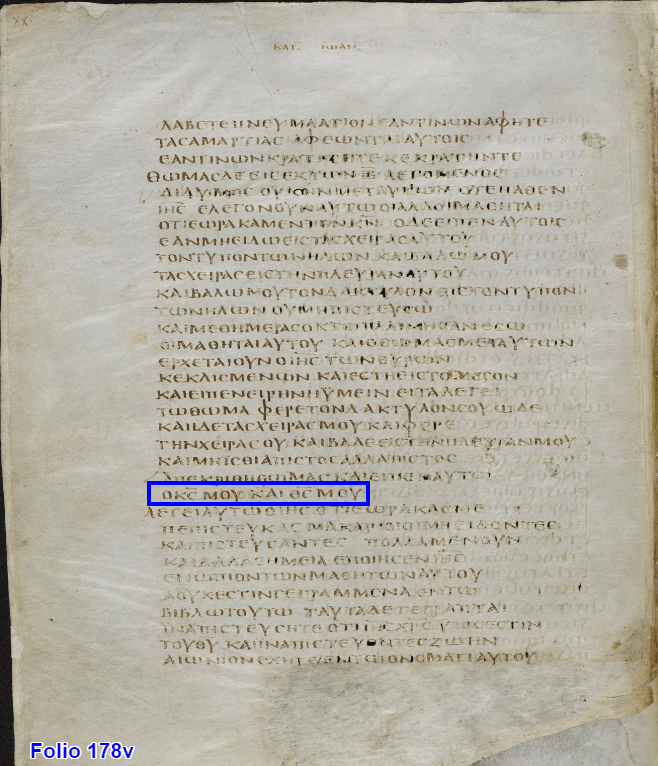 ΚΑΤ ΙΩΑΝ
ΛΑΒΕΤΕ ΠΝΕΥΜΑ ΑΓΙΟΝ ΕΑΝ ΤΙΝΩΝ ΑΦΗΤΕ
ΤΑΣ ΑΜΑΡΤΙΑΣ ΑΦΕΩΝΤΑΙ ΑΥΤΟΙΣ
ΕΑΝ ΤΙΝΩΝ ΚΡΑΤΗΣΗΤΕ ΚΕΚΡΑΤΗΝΤΕ
ΘΩΜΑΣ ΔΕ ΕΙΣ ΕΚ ΤΩΝ ΙΒ ΛΕΓΟΜΕΝΟΣ
ΔΙΔΥΜΟΣ ΟΥΚ ΗΝ ΜΕΤ ΑΥΤΩΝ ΟΤΕ ΗΛΘΕΝ
ΙΗΣ ΕΛΕΓΟΝ ΟΥΝ ΑΥΤΩ ΟΙ ΑΛΛΟΙ ΜΑΘΗΤΑΙ
ΟΤΙ ΕΩΡΑΚΑΜΕΝ ΤΟΝ ΚΝ Ο ΔΕ ΕΙΠΕΝ ΑΥΤΟΙΣ
ΕΑΝ ΜΗ ΕΙΔΩ ΕΙΣ ΤΑΣ ΧΕΙΡΑΣ ΑΥΤΟΥ
ΤΟΝ ΤΥΠΟΝ ΤΩΝ ΗΛΩΝ ΚΑΙ ΒΑΛΩ ΜΟΥ
ΤΑΣ ΧΕΙΡΑΣ ΕΙΣ ΤΗΝ ΠΛΕΥΡΑΝ ΑΥΤΟΥ
ΚΑΙ ΒΑΛΩ ΜΟΥ ΤΟΝ ΔΑΚΤΥΛΟΝ ΕΙΣ ΤΟΝ ΤΥΠΟΝ
ΤΩΝ ΗΛΩΝ ΟΥ ΜΗ ΠΙΣΤΕΥΣΩ
ΚΑΙ ΜΕΘ ΗΜΕΡΑΣ ΟΚΤΩ ΠΑΛΙΝ ΗΣΑΝ ΕΣΩ
ΟΙ ΜΑΘΗΤΑΙ ΑΥΤΟΥ ΚΑΙ Ο ΘΩΜΑΣ ΜΕΤ ΑΥΤΩΝ
ΕΡΧΕΤΑΙ ΟΥΝ Ο ΙΗΣ ΤΩΝ ΘΥΡΩΝ
ΚΕΚΛΙΣΜΕΝΩΝ ΚΑΙ ΕΣΤΗ ΕΙΣ ΤΟ ΜΕΣΟΝ
ΚΑΙ ΕΙΠΕΝ ΕΙΡΗΝΗ ΥΜΕΙΝ ΕΙΤΑ ΛΕΓΕΙ
ΤΩ ΘΩΜΑ ΦΕΡΕ ΤΟΝ ΔΑΚΤΥΛΟΝ ΣΟΥ ΩΔΕ
ΚΑΙ ΙΔΕ ΤΑΣ ΧΕΙΡΑΣ ΜΟΥ ΚΑΙ ΦΕΡΕ
ΤΗΝ ΧΕΙΡΑ ΣΟΥ ΚΑΙ ΒΑΛΕ ΕΙΣ ΤΗΝ ΠΛΕΥΡΑΝ ΜΟΥ
ΚΑΙ ΜΗ ΙΣΘΙ ΑΠΙΣΤΟΣ ΑΛΛΑ ΠΙΣΤΟΣ
ΑΠΕΚΡΙΘΗ ΘΩΜΑΣ ΚΑΙ ΕΙΠΕΝ ΑΥΤΩ
Ο ΚΣ ΜΟΥ ΚΑΙ ΘΣ ΜΟΥ
ΛΕΓΕΙ ΑΥΤΩ Ο ΙΗΣ ΟΤΙ ΕΩΡΑΚΑΣ ΜΕ
ΠΕΠΙΣΤΕΥΚΑΣ ΜΑΚΑΡΙΟΙ ΟΙ ΜΗ ΕΙΔΟΝΤΕΣ
ΚΑΙ ΠΙΣΤΕΥΣΑΝΤΕΣ ΠΟΛΛΑ ΜΕΝ ΟΥΝ
ΚΑΙ ΑΛΛΑ ΣΗΜΕΙΑ ΕΠΟΙΗΣΕΝ Ο ΙΗΣ
ΕΝΩΠΙΟΝ ΤΩΝ ΜΑΘΗΤΩΝ ΑΥΤΟΥ
Α ΟΥΚ ΕΣΤΙΝ ΓΕΓΡΑΜΜΕΝΑ ΕΝ ΤΩ
ΒΙΒΛΩ ΤΟΥΤΩ ΤΑΥΤΑ ΔΕ ΓΕΓΡΑΠΤΑΙ
ΙΝΑ ΠΙΣΤΕΥΣΗΤΕ ΟΤΙ ΙΗΣ ΧΡΣ ΥΙΟΣ ΕΣΤΙΝ
ΤΟΥ ΘΥ ΚΑΙ ΙΝΑ ΠΙΣΤΕΥΟΝΤΕΣ ΖΩΗΝ
ΑΙΩΝΙΟΝ ΕΧΗΤΕ ΕΝ ΤΩ ΟΝΟΜΑΤΙ ΑΥΤΟΥ
Folio 178v